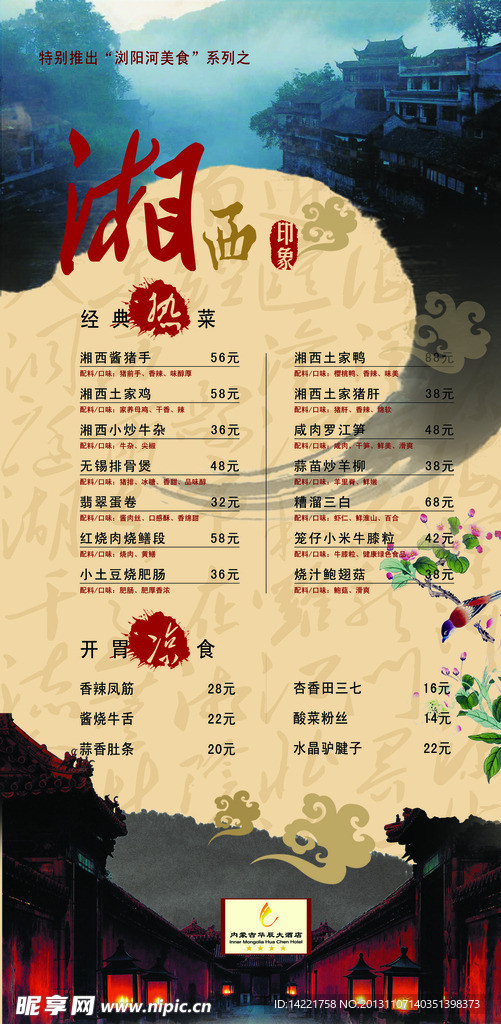 特别推出“浏阳河美食”系列之
湘西
印象
经典热菜
湘西酱猪手 56元
配料/口味：猪前手、香辣、味醇厚
湘西土家鸡 58元
配料/口味：家养母鸡、干香、辣
湘西小炒牛杂 36元
配料/口味：牛杂、尖椒
无锡排骨煲 48元
配料/口味：猪排、冰糖、香甜、品味醇
翡翠蛋卷 32元
配料/口味：酱肉丝、口感酥、香绵甜
红烧肉烧鳝段 58元
配料/口味：烧肉、黄鳝
小土豆烧肥肠 36元
配料/口味：肥肠、肥厚香浓
湘西土家鸭 88元
配料/口味：樱桃鸭、香辣、味美
湘西土家猪肝 38元
配料/口味：猪肝、香辣、绵软
咸肉罗江笋 48元
配料/口味：咸肉、干笋、鲜美、滑爽
蒜苗炒羊柳 38元
配料/口味：羊里脊、鲜嫩
糟溜三白 68元
配料/口味：虾仁、鲜淮山、百合
笼仔小米牛膝粒 42元
配料/口味：牛膝粒、健康绿色食品
烧汁鲍翅菇 38元
配料/口味：鲍菇、滑爽
开胃凉食
香辣凤筋 28元
酱烧牛舌 22元
蒜香肚条 20元
杏香田三七 16元
酸菜粉丝 14元
水晶驴腱子 22元
内蒙古华辰大酒店
Inner Mongolia Hua Chen Hotel
昵享网 www.nipic.cn
ID:14221758 NO:20131107140351398373